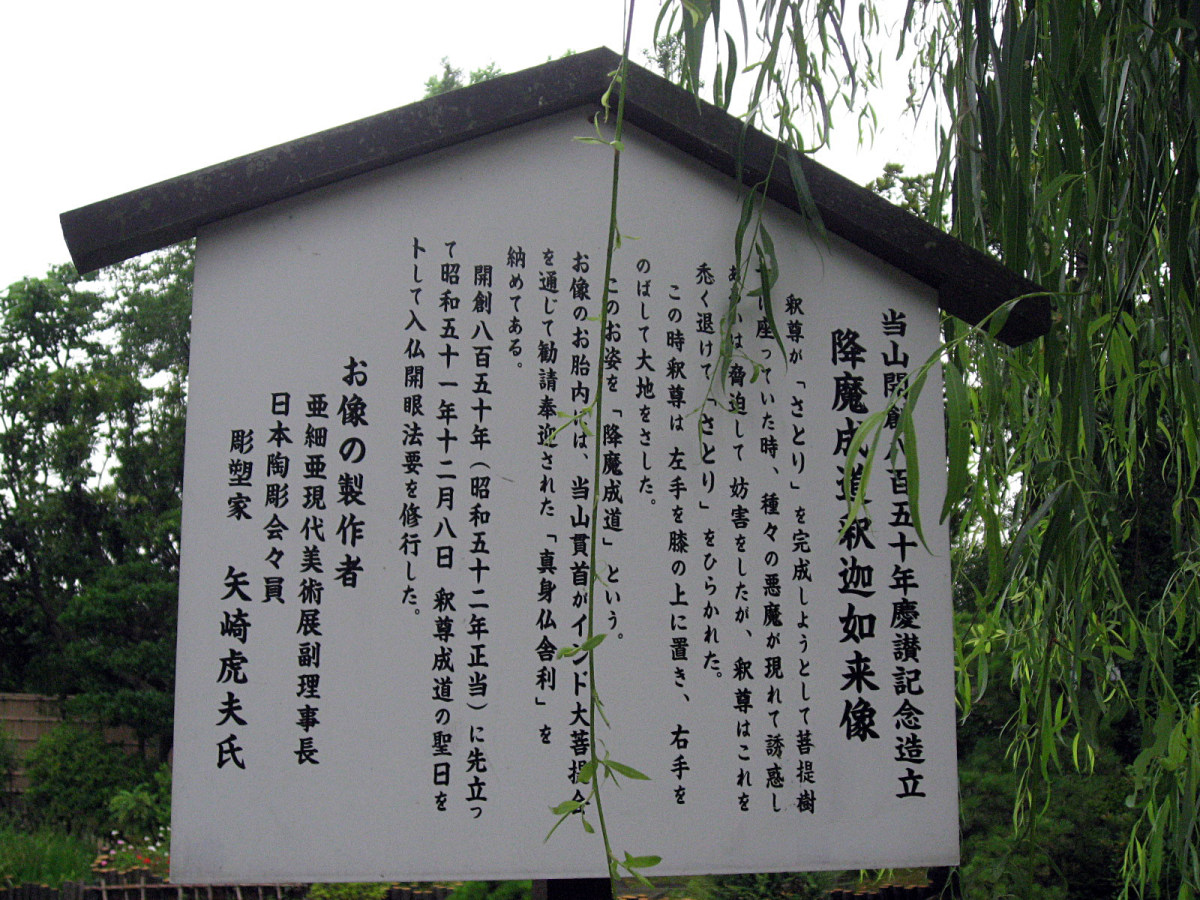 当山開創八百五十年慶讃記念造立
降魔成道釈迦如来像
釈尊が「さとり」を完成しようとして菩提樹
下に座っていた時、種々の悪魔が現れて誘惑し
あるいは脅迫して妨害をしたが、釈尊はこれを
悉く退けて「さとり」をひらかれた。
この時釈尊は左手を膝の上に置き、右手を
のばして大地をさした。
このお姿を「降魔成道」という。
お像のお胎内には、当山貫首がインド大菩提会
を通じて勧請奉迎された「真身仏舎利」を
納めてある。
開創八百五十年（昭和五十二年正当）に先立っ
て昭和五十一年十二月八日 釈尊成道の聖日を
トして入仏開眼法要を修行した。
お像の製作者
亜細亜現代美術展副理事長
日本陶彫会々員
彫塑家 矢崎虎夫氏